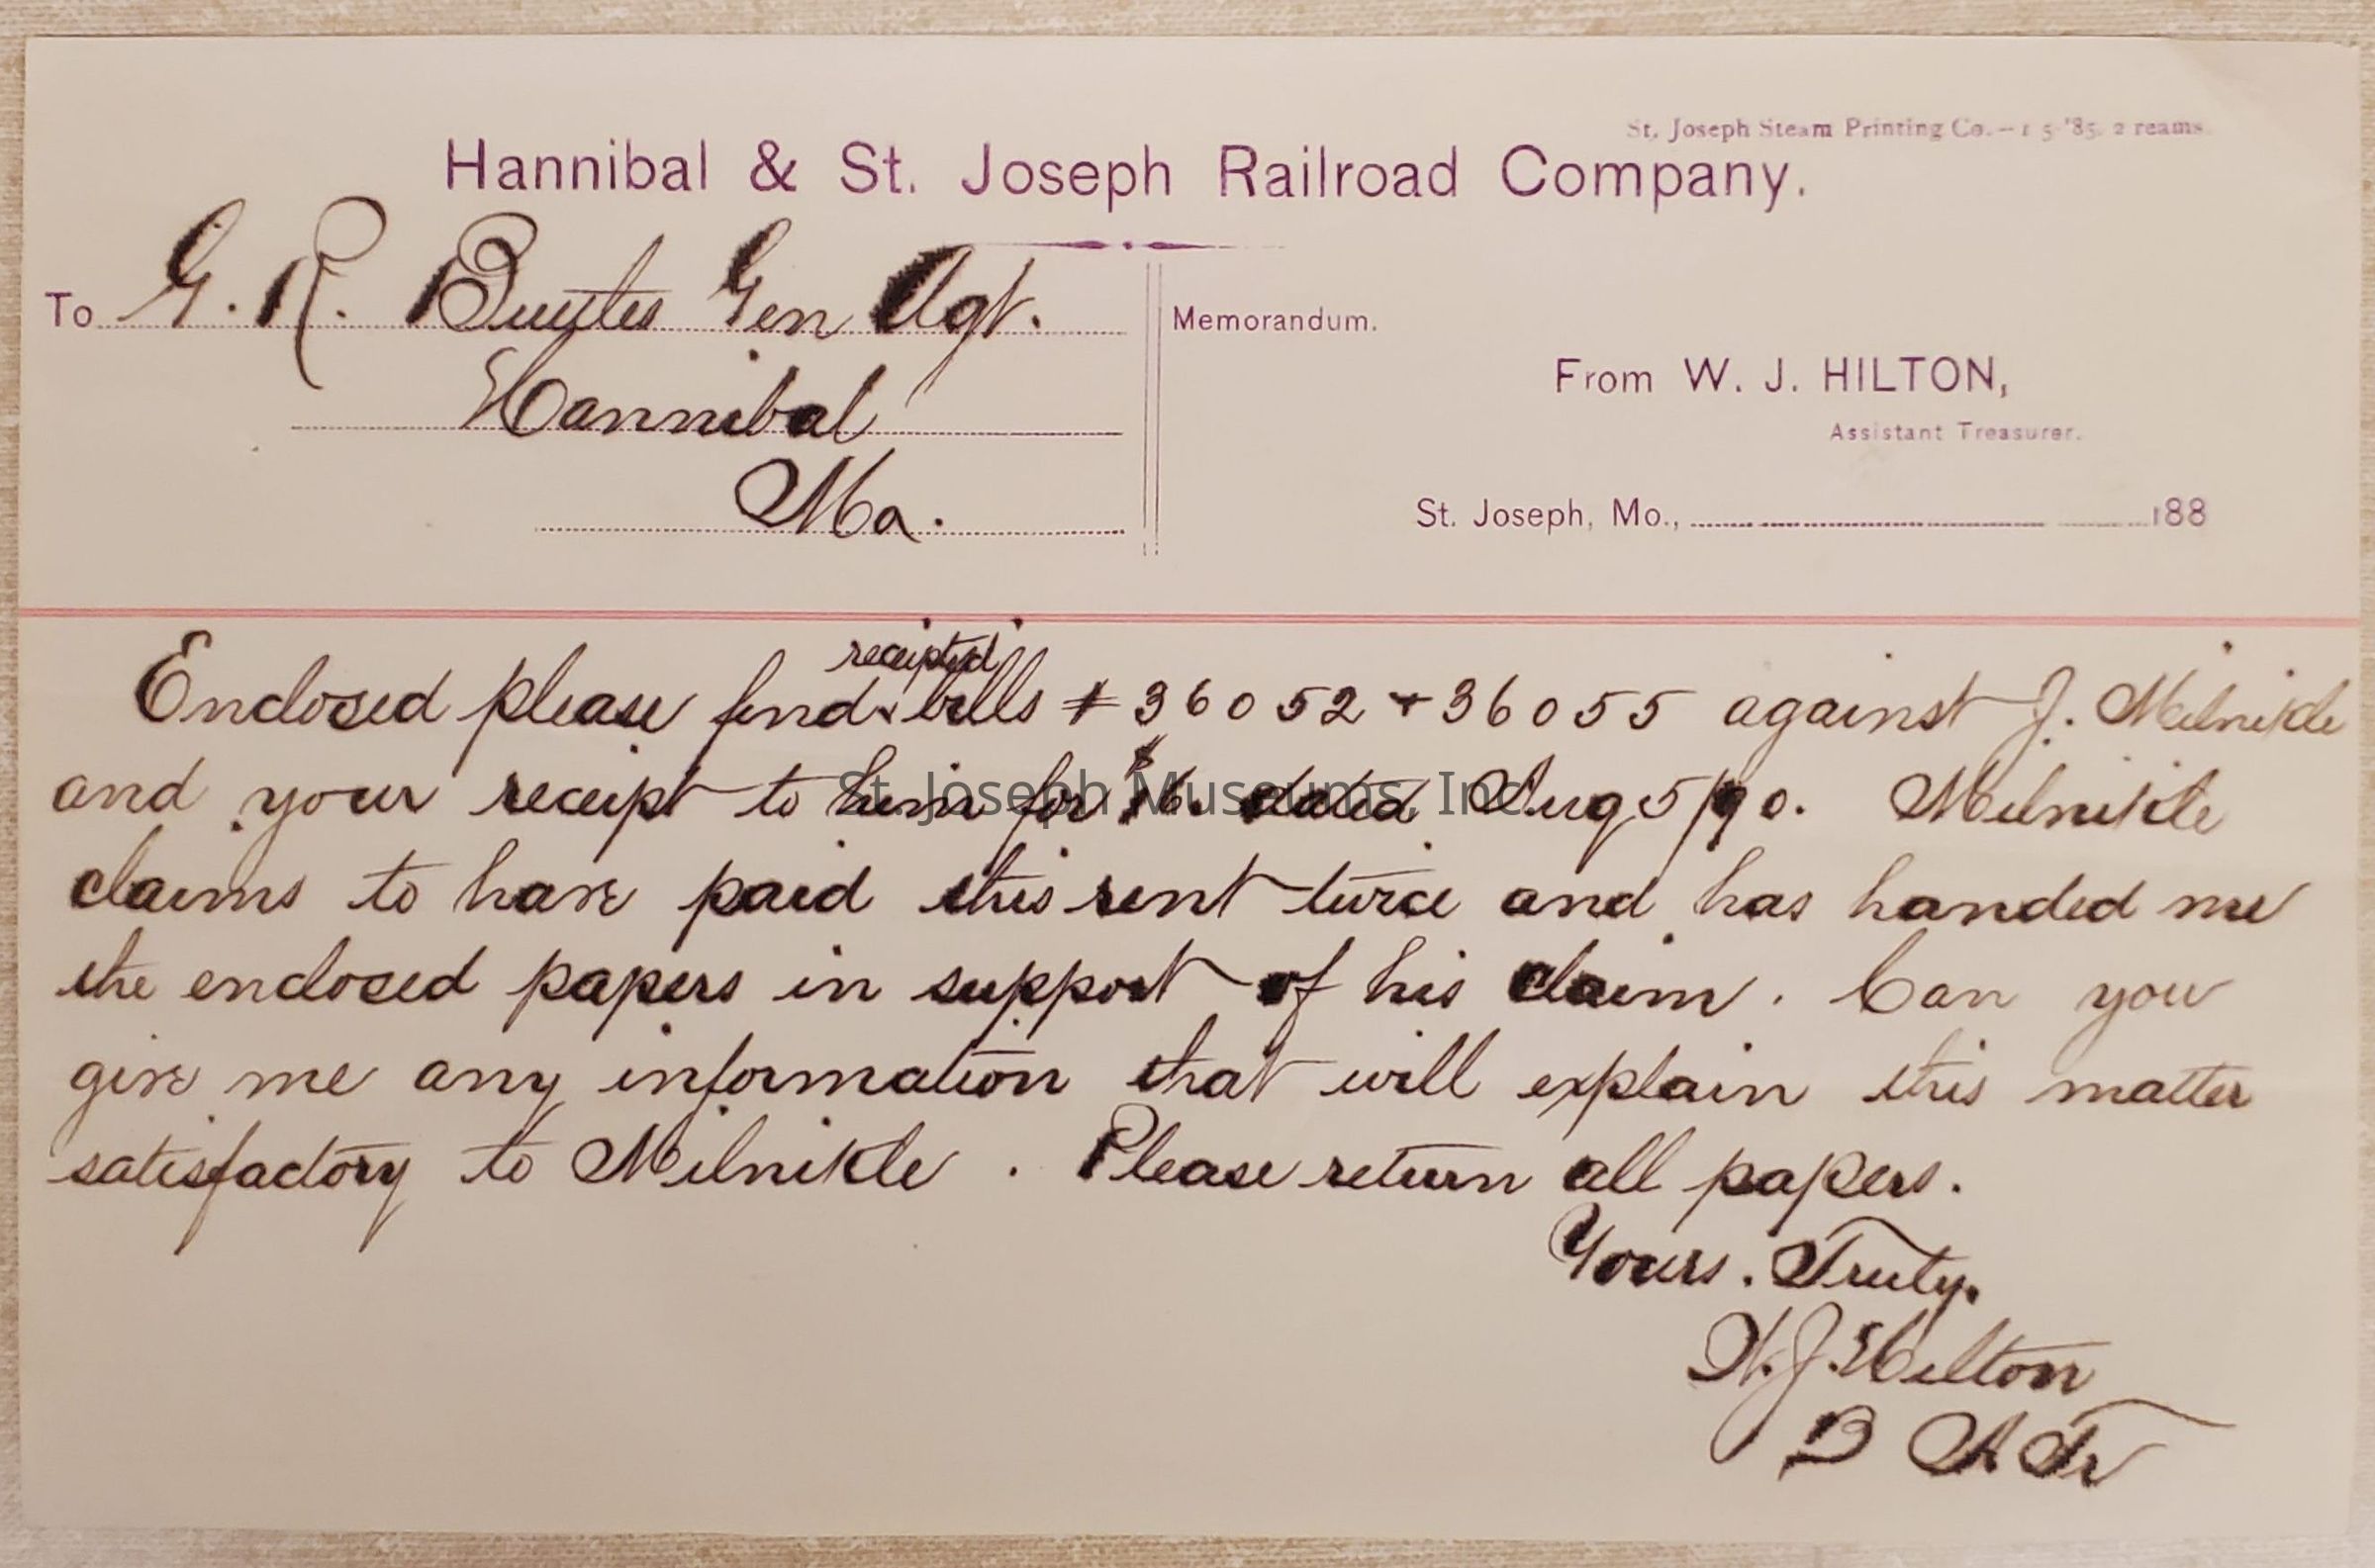 St. Joseph Steam Printing Co.—1 5-'85. 2 reams.
Hannibal & St. Joseph Railroad Company.
To G. R. Gen Agt.
Hannibal
Mo.
Memorandum.
From W. J. HILTON,
Assistant Treasurer.
St. Joseph, Mo., 188
receipted
Enclosed please find bills # 36052 + 36055 against J. Milnikle
and your receipt to him for $16. dated Aug 5/90. Milnikle
claims to have paid this rent twice and has handed me
the enclosed papers in support of his claim. Can you
give me any information that will explain this matter
satisfactory to Milnikle. Please return all papers.
Yours Truly,
W. J. Hilton
A Tr
St. Joseph Museums, Inc.